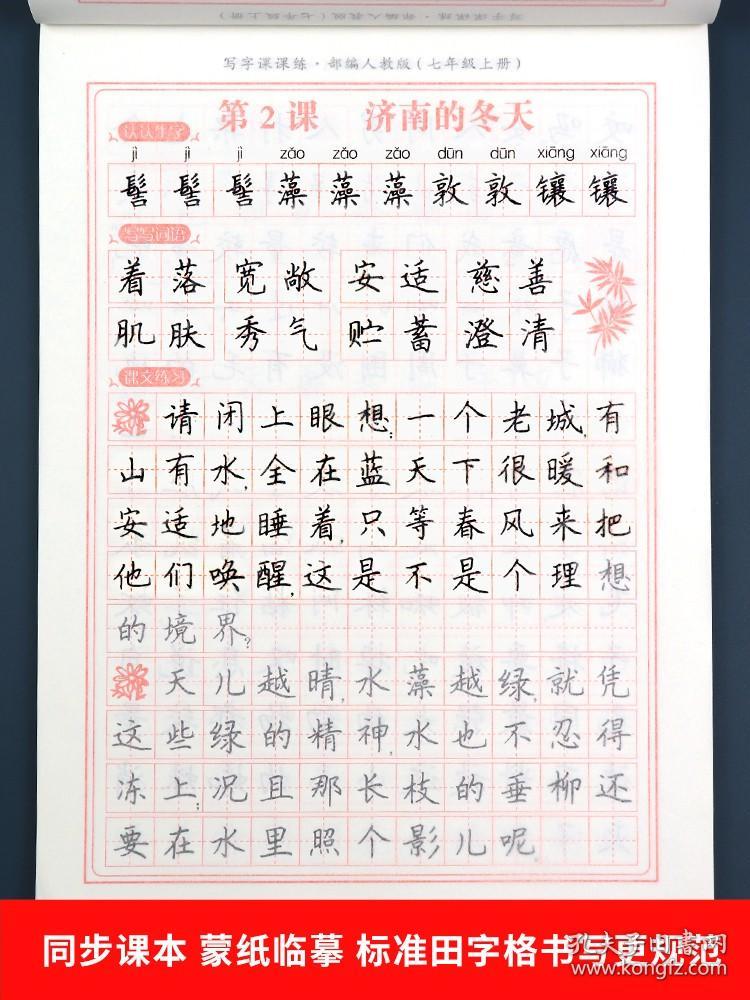 写字课课练·部编人教版(七年级上册)
第2课 济南的冬天
认认生字
jì jì jì zǎo zǎo zǎo dūn dūn xiāng xiāng
髻髻髻藻藻藻敦敦镶镶
写写词语
着落 宽敞 安适 慈善
肌肤 秀气 贮蓄 澄清
课文练习
请闭上眼想:一个老城,有
山有水,全在蓝天下很暖和
安适地睡着,只等春风来把
他们唤醒,这是不是个理想
的境界?
天儿越晴,水藻越绿,就凭
这些绿的精神,水也不忍得
冻上;况且那长枝的垂柳还
要在水里照个影儿呢
同步课本 蒙纸临摹 标准田字格书写更规范
孔夫子旧书网
www.kongfz.com